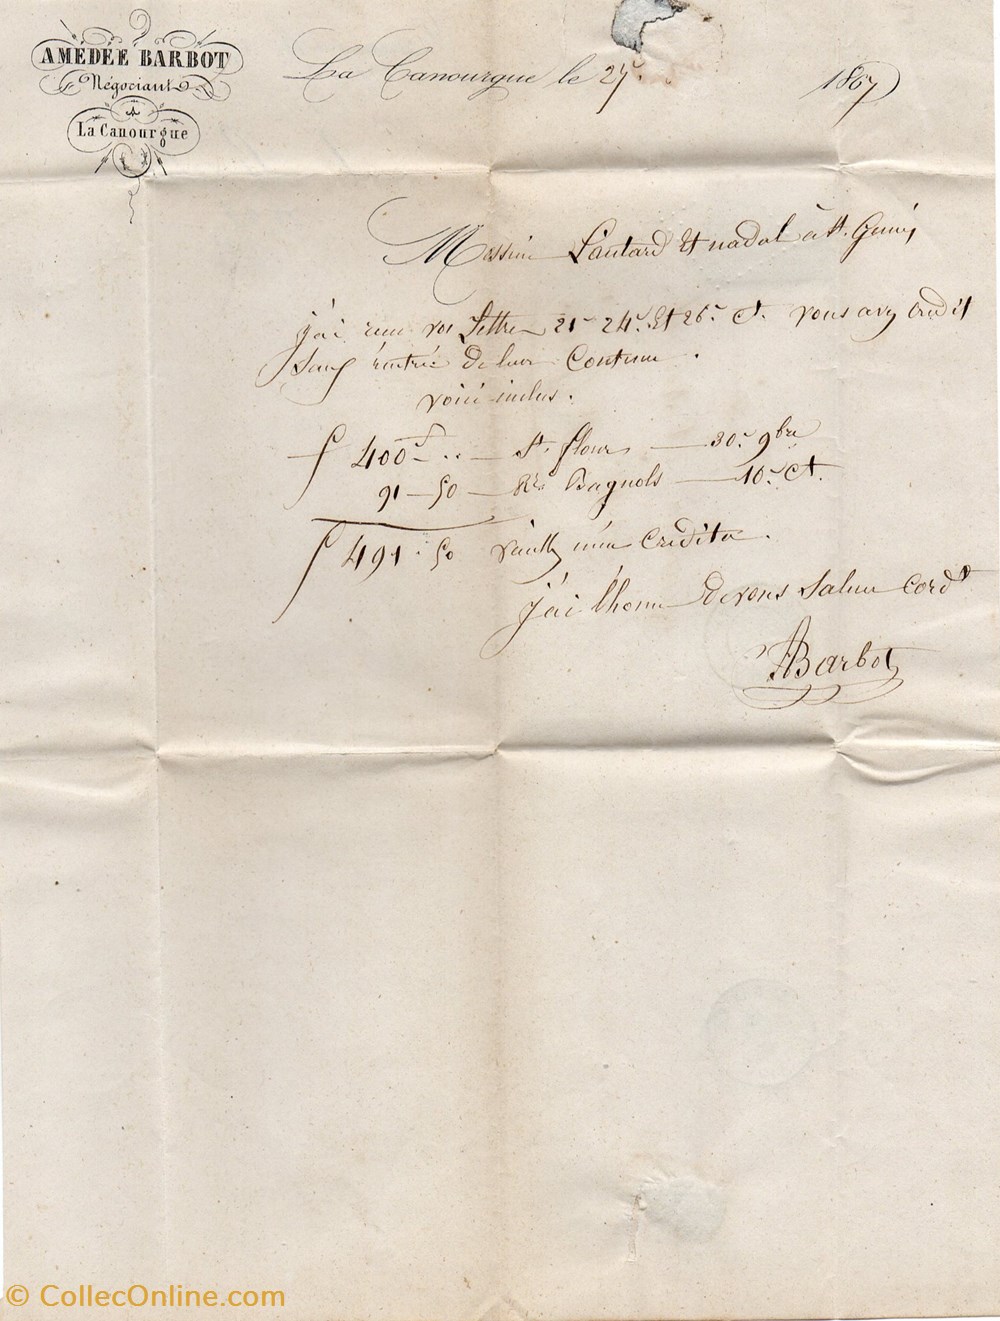 AMÉDÉE BARBOT
Négociant
La Canourgue
La Canourgue le 27 1867
Messieurs Lautard Et nadal à St. Geniès
j'ai reçu vos Lettres 21. 24. Et 26. Ct. vous avez crédit
Sauf rentrée de leur Contenu.
voici inclus.
f 400 " St. flour 30. 9bre
91 50 Bagnols 10. Ct.
f 491. 50 veuillez m'en Créditer.
j'ai l'honneur De vous Saluer Cordt
ABarbot
© CollecOnline.com